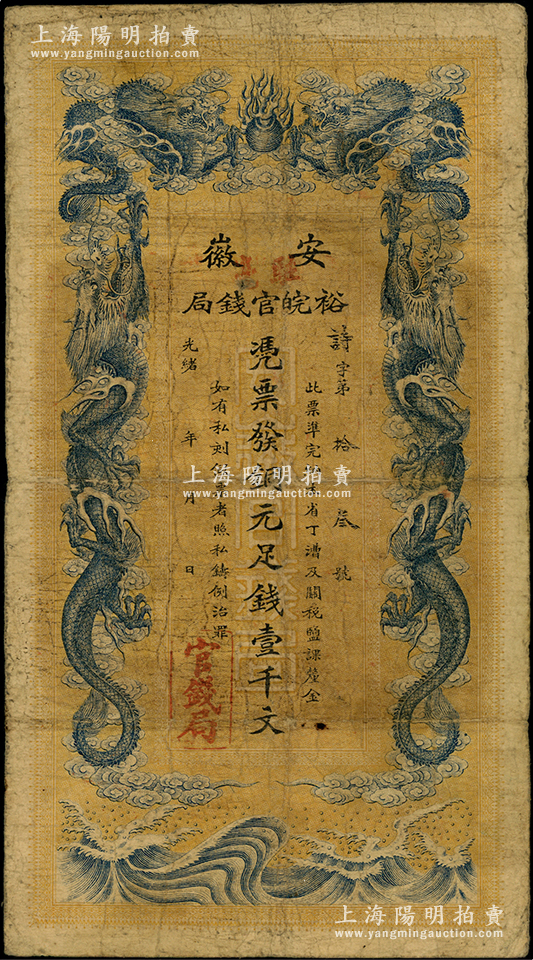 上海陽明拍賣
www.yangmingauction.com
安徽
裕皖官錢局
詩字第拾叁號
此票準完省丁漕及關稅鹽課釐金
凴票發銅元足錢壹千文
如有私刻者照私鑄例治罪
光緒 年 月 日
官錢局
上海陽明拍賣
www.yangmingauction.com
上海陽明拍賣
www.yangmingauction.com